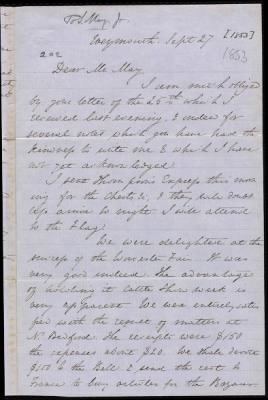 To S. May, Jr.
Weymouth Sept 27 [1853]
1853
Dear Mr May
I am much obliged
by your letter of the 25th which I
received last evening & indeed for
several notes which you have had the
kindness to write me & which I have
not yet acknowledged.
I sent Thom pson's Express this mor
ning for the Chests &c, & they will doubt
less arrive to night I will attend
to the Flag.
We were delighted at the
success of the Worcester Fair. It was
very good indeed. The advantage
of holding it Cattle Show week is
very apparent. We were entirely satis
fied with the result of matters at
N. Bedford. The receipts were $150
the expenses about $20. We shall devote
$50 to the Bell & send the rest to
France to buy articles for the Bazaar.